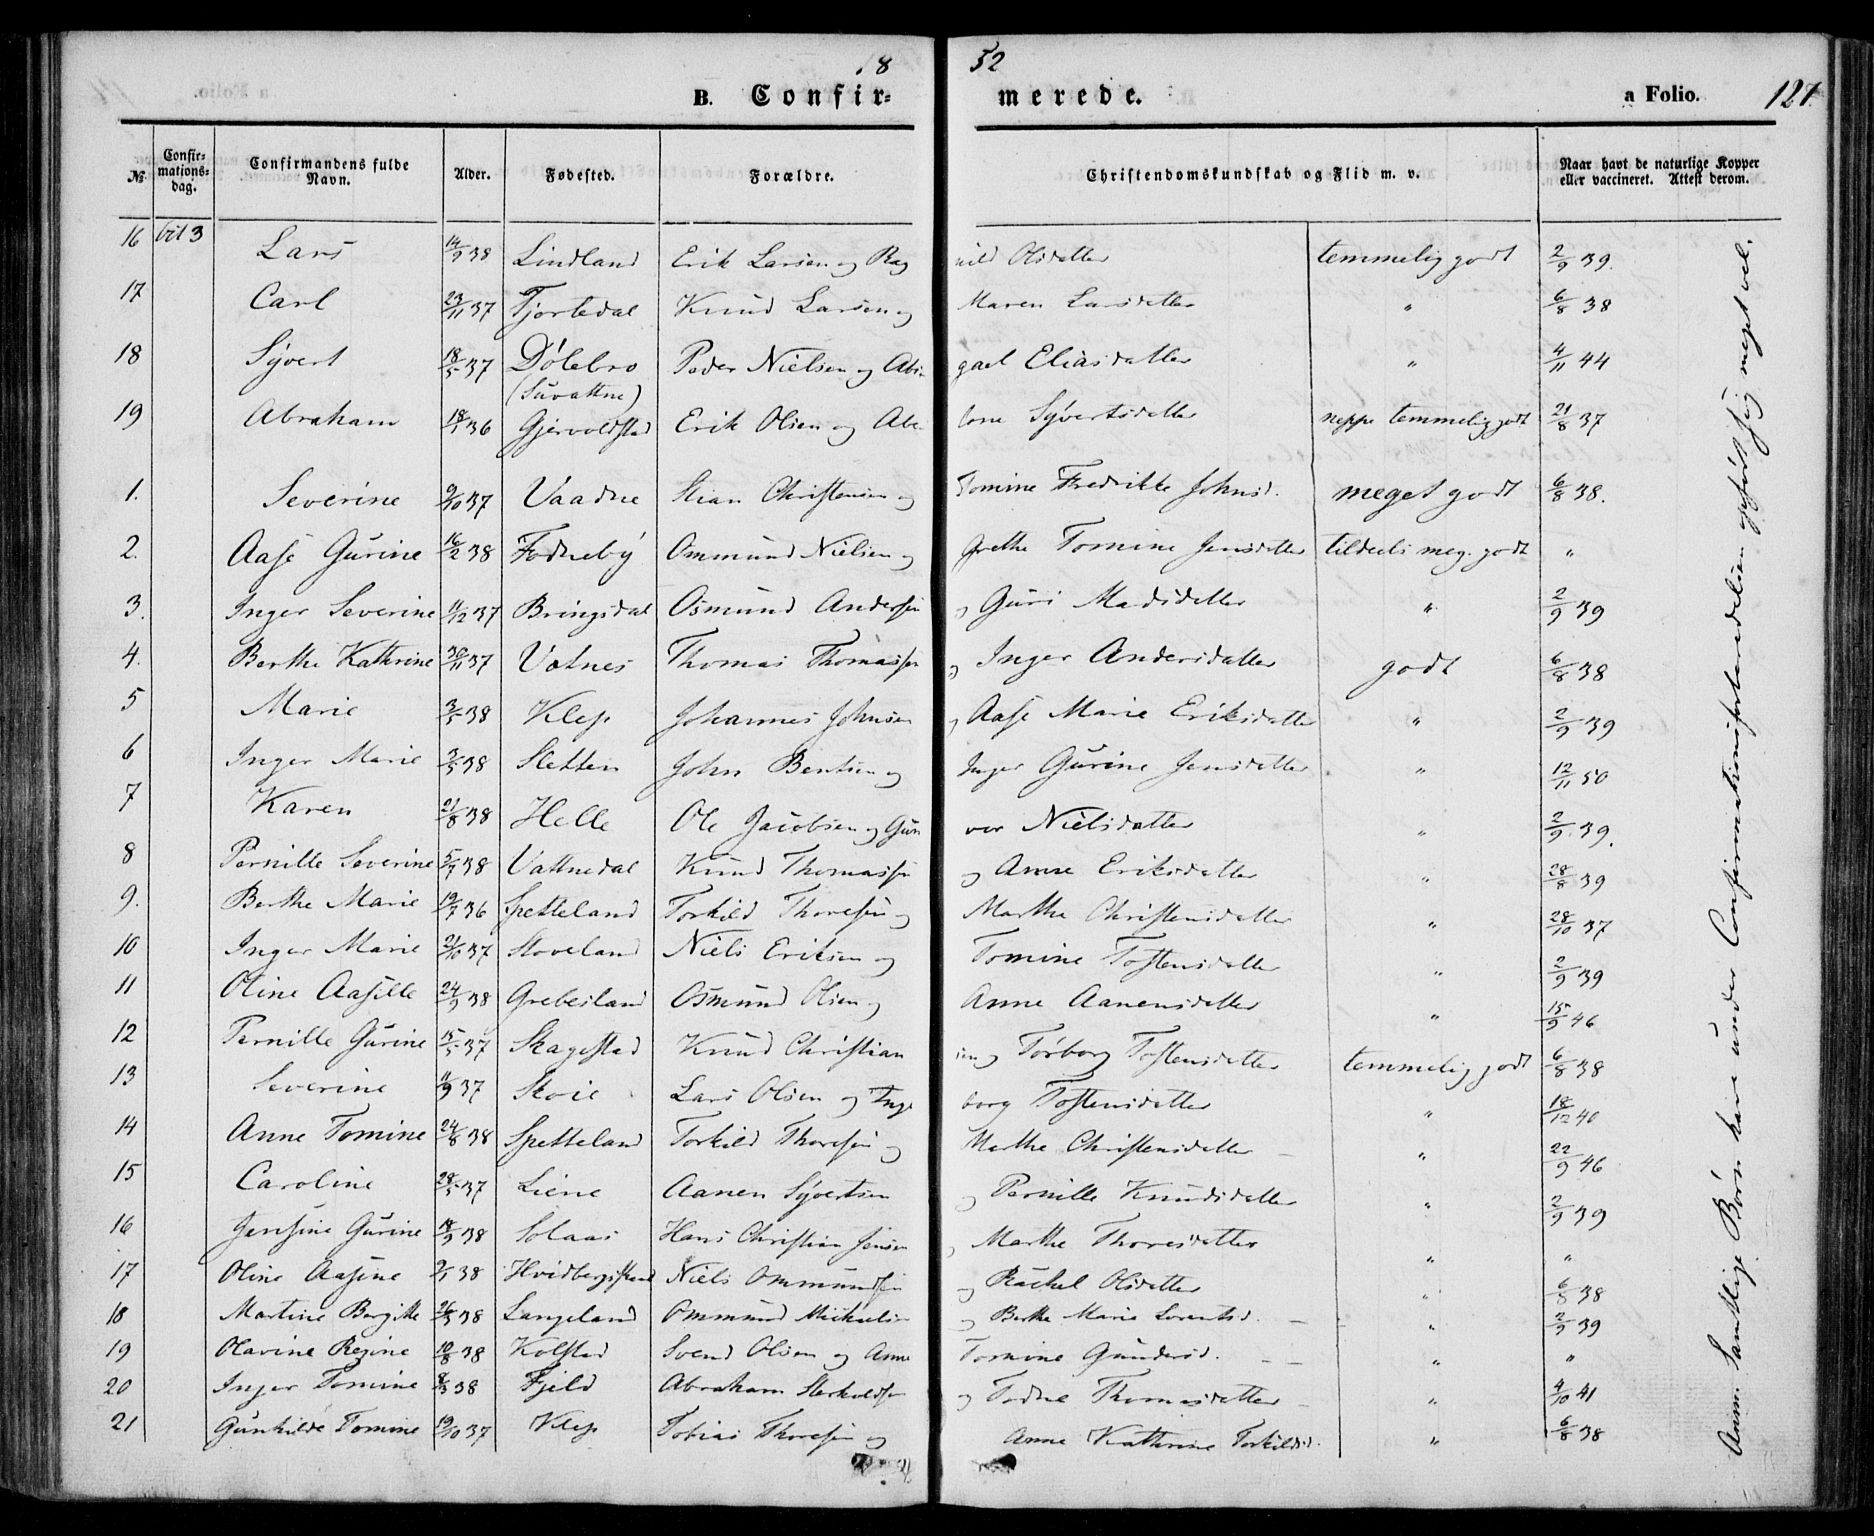 18 52
B. Confirmerede. a Folio. 127.
№ Confirmationsdag. Confirmandens fulde Navn. Alder. Fødested. Forældre. Christendomskundskab og Flid m. v. Naar havt de naturlige Kopper eller vaccineret. Attest derom.
16 Lars 14/9 38 Lindland Erik Larsen og Ragnild Olsdatter temmelig godt 2/9 39.
17 Carl 23/11 37 Tjortedal Knud Larsen og Maren Larsdatter " 6/8 38
18 Syvert 18/5 37 Dølebro Peder Nielsen og Abigael Eliasdatter " 4/11 44
(Suvattne)
19 Abraham 18/1 36 Gjervoldstad Erik Olsen og Abelone Syvertsdatter neppe temmelig godt 21/8 37
1. Severine 9/10 37 Vaadne Stian Christensen og Tomine Fredrikke Johnsd. meget godt 6/8 38.
2. Aase Gurine 16/2 38 Fodneby Ommund Nielsen og Grethe Tomine Jensdatter tildeels meg. godt "
3. Inger Severine 11/12 37 Bringsdal Osmund Andersen og Guri Madsdatter " 2/9 39
4. Berthe Kathrine 30/11 37 Vatnes Thomas Thomassen og Inger Andersdatter godt 6/8 38
5 Marie 3/5 38 Klep Johannes Johnsen og Aase Marie Eriksdatter " 2/9 39
6 Inger Marie 3/5 38 Sletten John Bentsen og Inger Gurine Jensdatter " 12/11 50
7 Karen 21/8 38 Helle Ole Jacobsen og Gunvor Nielsdatter " 2/9 39.
8 Pernille Severine 5/7 38 Vattnedal Knud Thomassen og Anne Eriksdatter " 28/8 39
9. Berthe Marie 19/7 36 Spetteland Torkild Thoresen og Marthe Christensdatter " 28/10 37
10 Inger Marie 21/10 37 Stoveland Niels Eriksen og Tomine Tostensdatter " 2/9 39
11 Oline Aasille 24/9 38 Grebesland Osmund Olsen og Anne Aanensdatter " 15/9 46
12 Pernille Gurine 15/5 37 Skagestad Knud Christiansen og Torborg Tostensdatter temmelig godt 6/8 38
13 Severine 11/9 37 Stoie Lars Olsen og Ingeborg Tostensdatter " 18/12 40
14 Anne Tomine 24/8 38 Spetteland Torkild Thoresen og Marthe Christensdatter " 22/9 46
15 Caroline 28/5 37 Liene Aanen Syvertsen og Pernille Knudsdatter " 2/9 39
16 Jensine Gurine 18/9 38 Solaas Hans Christian Jensen og Marthe Thoresdatter " "
17 Oline Aasine 9/1 38 Niels Ommundsen og Rachel Olsdatter " 6/8 38
18 Martine Bergitte 26/3 38 Langeland Ommund Michaelsen og Berthe Marie Lorentsd. " 2/9 39
19 Olavine Regine 10/8 38 Kolstad Svend Olsen og Anne Tomine Gundersd. " "
20 Inger Tomine 8/3 38 Fjeld Abraham Sterkoldsen og Todne Thomasdatter " 4/10 41
21 Gunhilde Tomine 19/10 37 Klep Tobias Thoresen og Anne Kathrine Torkildsd. " 6/8 38
Anm. Samtlige Børn have under Confirmationsforberedelsen opført sig meget vel.